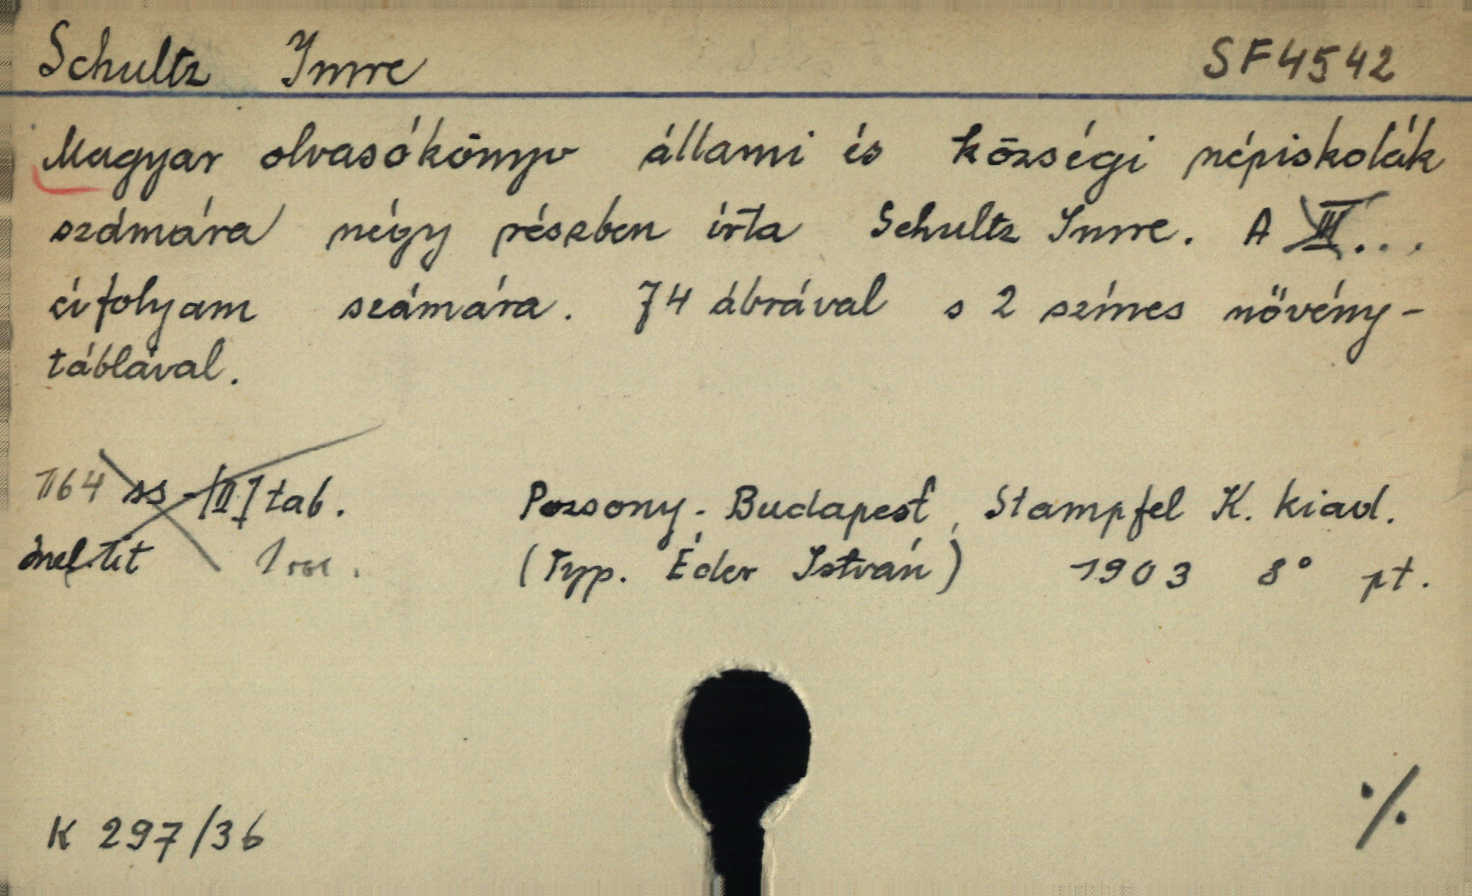 Schultz Imre SF4542
Magyar olvasókönyv állami és községi népiskolák
számára négy részben írta Schultz Imre. A III...
évfolyam számára. 74 ábrával s 2 színes növény-
táblával.
164 ss [II] tab. Pozsony-Budapest, Stampfel K. kiad.
tit (Typ. Éder István) 1903 8° pt.
K 297/36 ./.